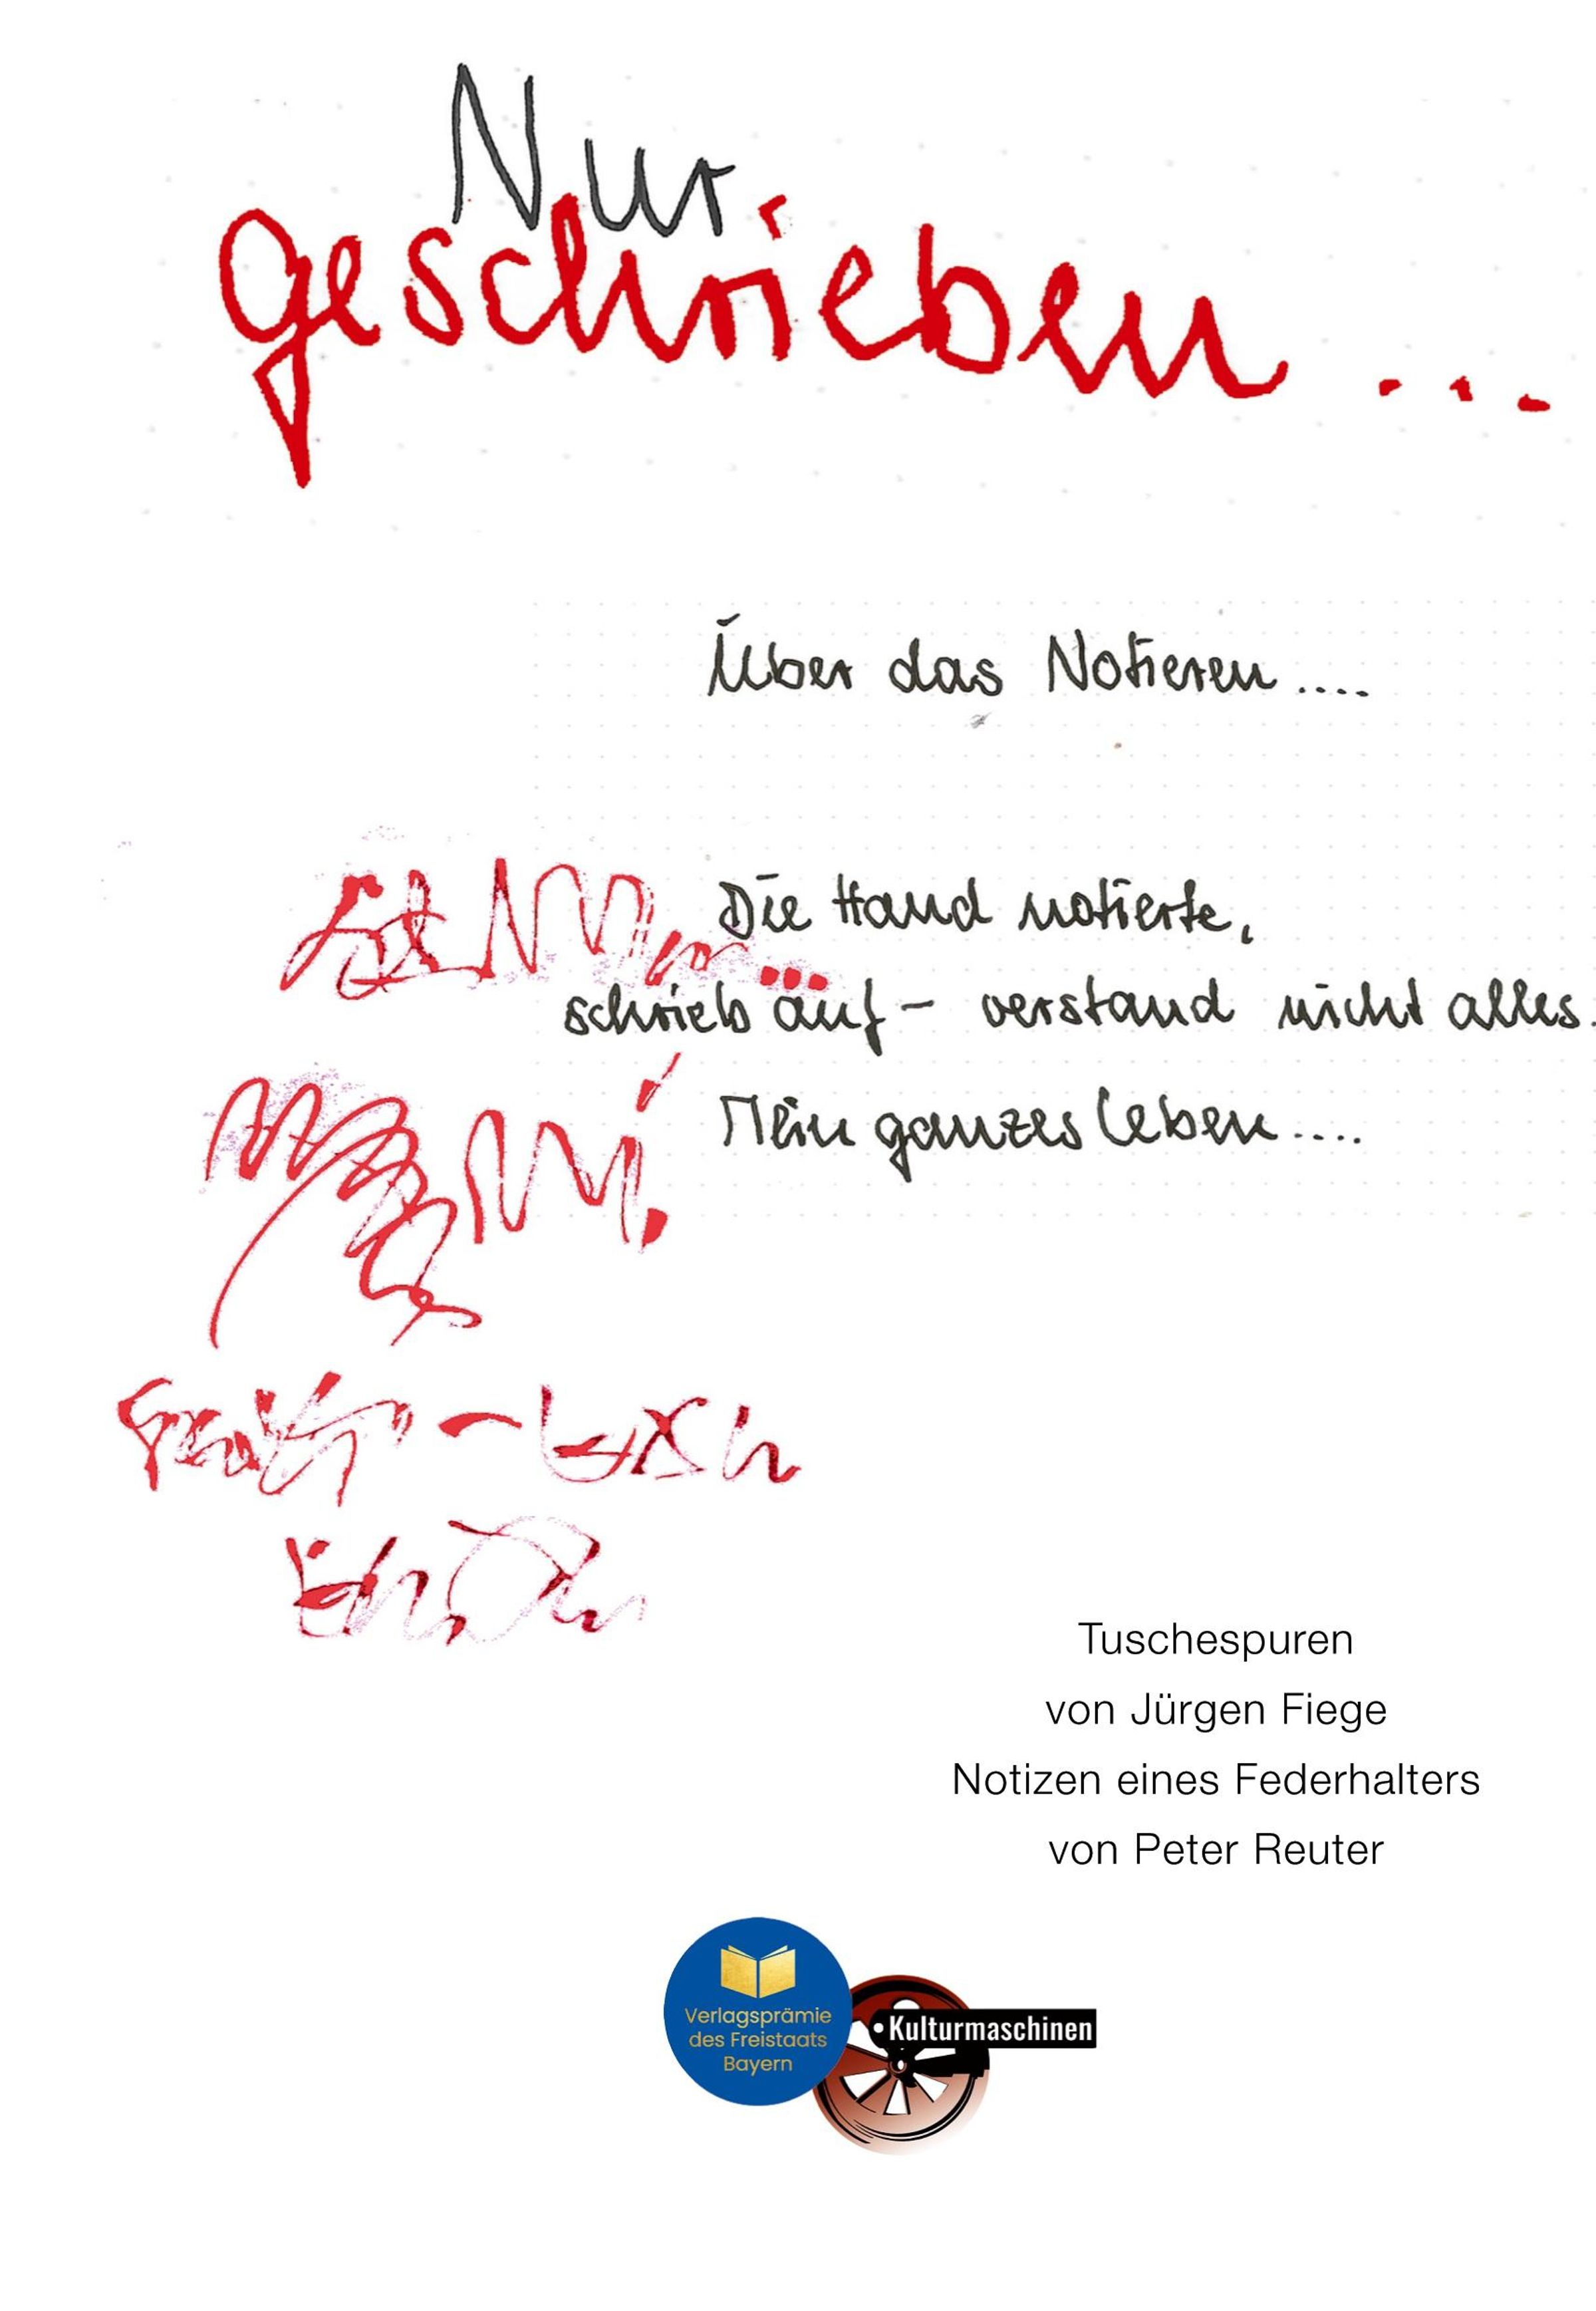 Nur
geschrieben...
Über das Notieren....
Die Hand notierte,
schrieb auf - verstand nicht alles.
Mein ganzes Leben....
Tuschespuren
von Jürgen Fiege
Notizen eines Federhalters
von Peter Reuter
Verlagsprämie
des Freistaats
Bayern
Kulturmaschinen